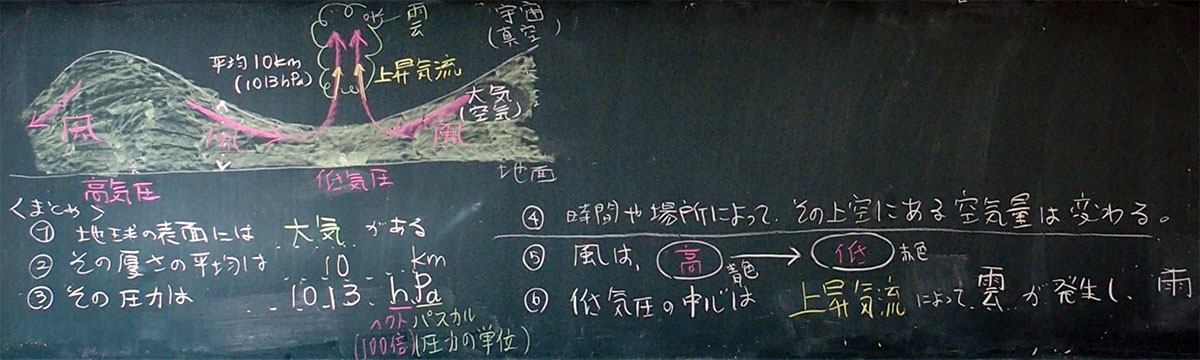 雲
宇宙
(真空)
平均10km
(1013hPa)
上昇気流
大気
(空気)
風
風
風
地面
高気圧
低気圧
<まとめ>
① 地球の表面には 大気 がある
② その厚さの平均は 10 km
③ その圧力は 1013 hPa
ヘクトパスカル
(100倍)(圧力の単位)
④ 時間や場所によって、その上空にある空気量は変わる。
⑤ 風は、高 → 低
青色
赤色
⑥ 低気圧の中心は 上昇気流 によって、雲が発生し、雨